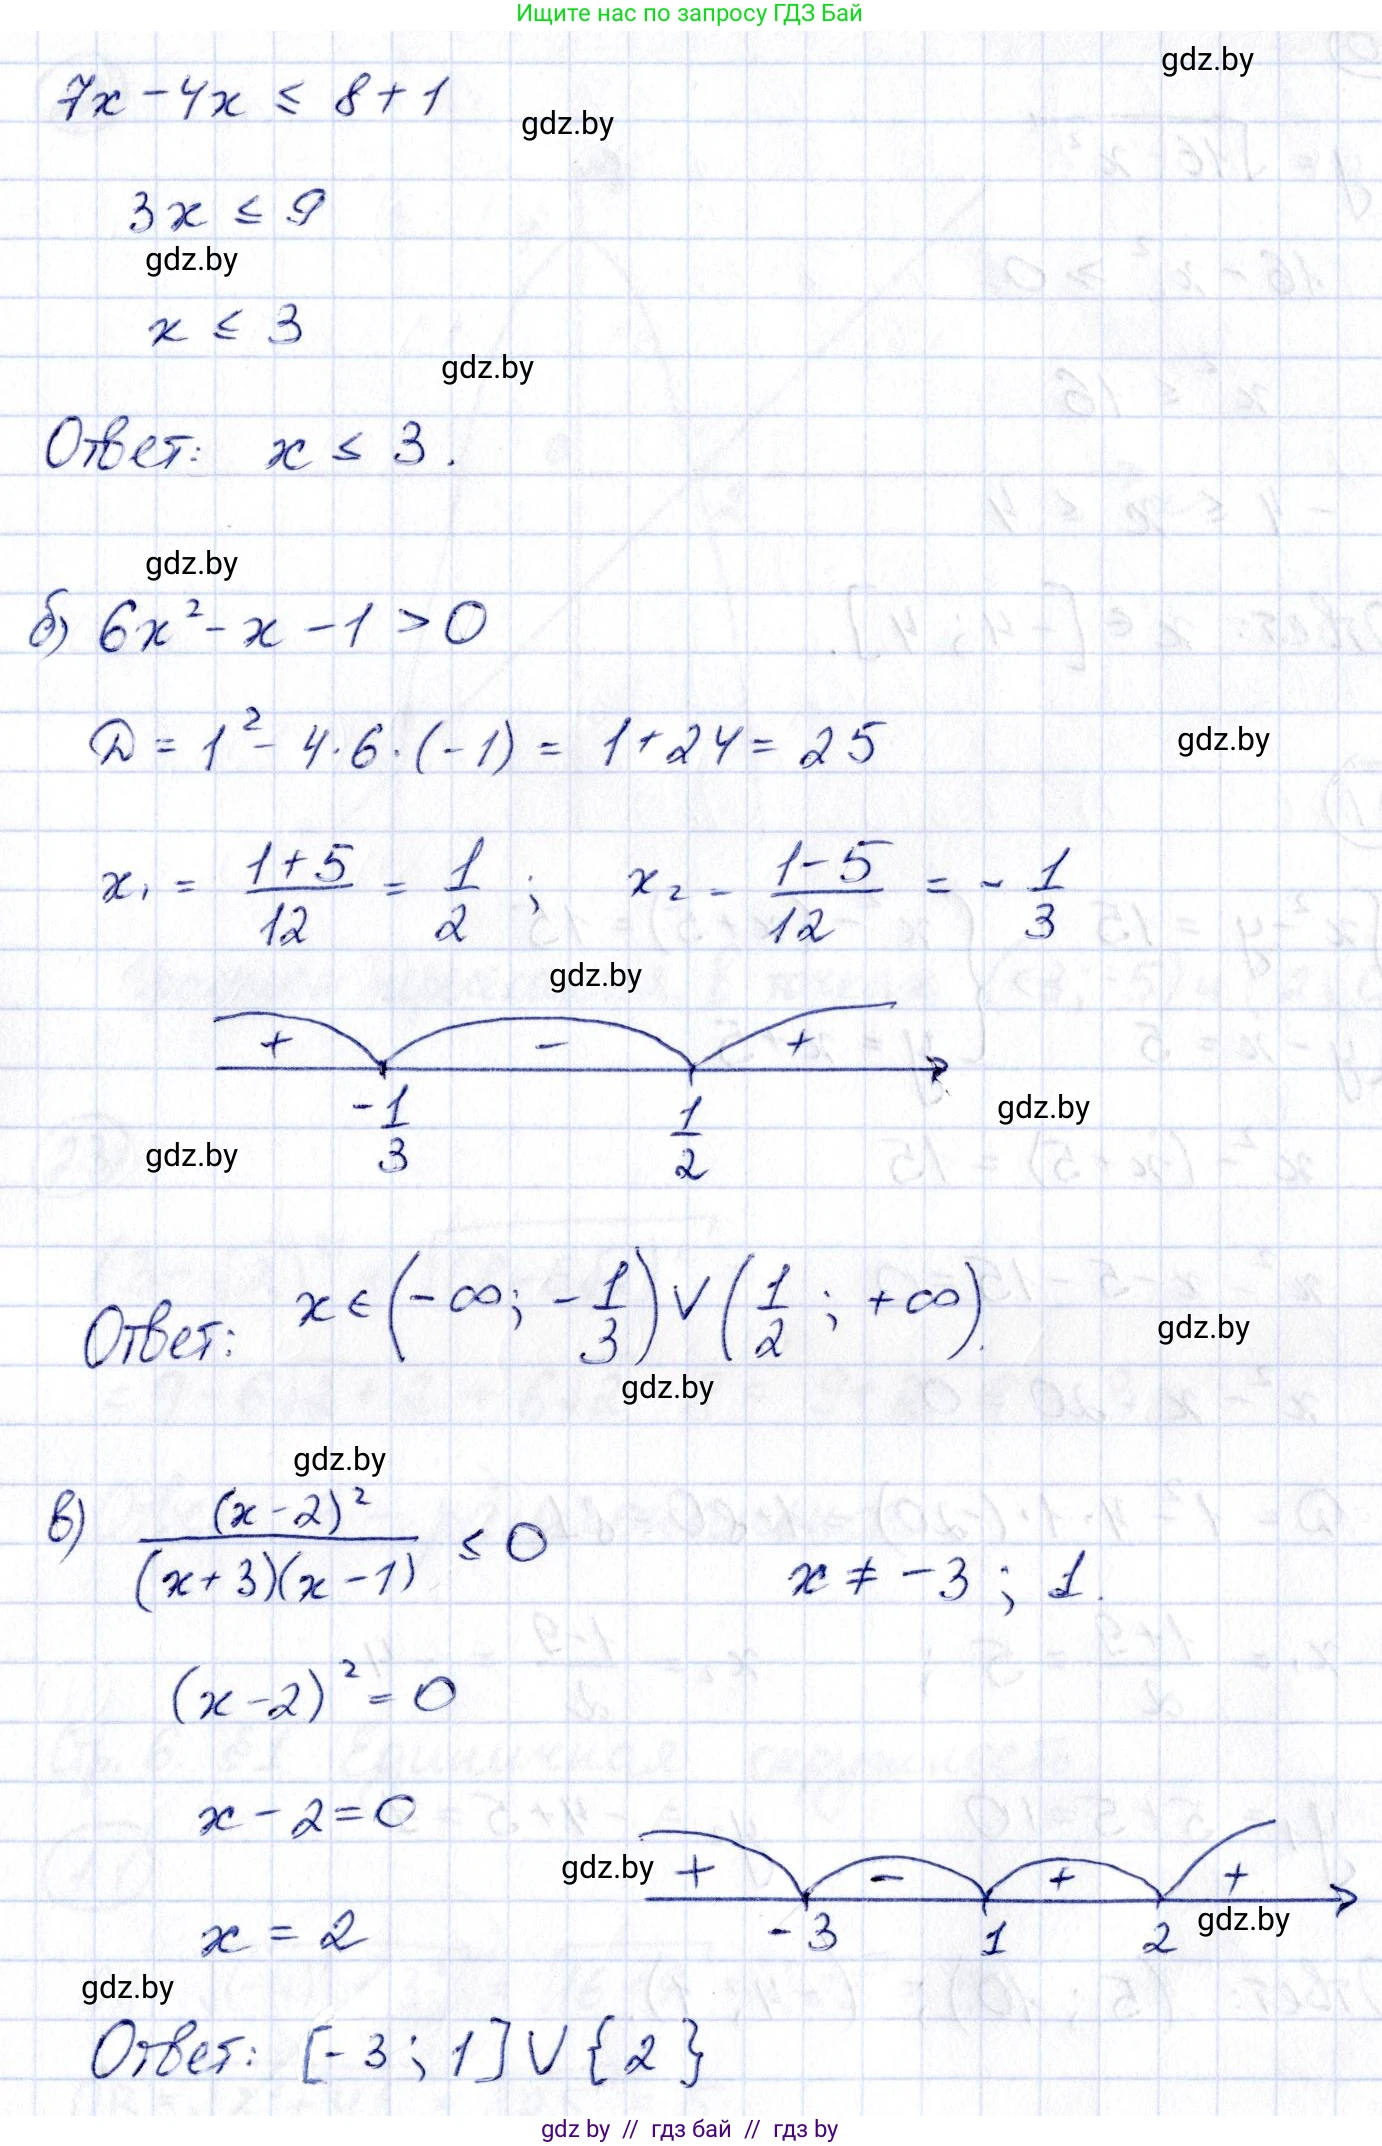 Ищите нас по запросу ГДЗ Бай
gdz.by
7x - 4x ≤ 8 + 1
gdz.by
3x ≤ 9
gdz.by
x ≤ 3
gdz.by
Ответ: x ≤ 3.
gdz.by
б) 6x² - x - 1 > 0
Д = 1² - 4·6·(-1) = 1 + 24 = 25
gdz.by
x₁ = (1+5)/12 = 1/2 ; x₂ = (1-5)/12 = -1/3
gdz.by
+ - +
-1/3 1/2
gdz.by
gdz.by
Ответ: x ∈ (-∞; -1/3) ∨ (1/2; +∞).
gdz.by
gdz.by
gdz.by
в) (x-2)²/((x+3)(x-1)) ≤ 0 x ≠ -3; 1.
(x-2)² = 0
x - 2 = 0
gdz.by
+ - + +
-3 1 2
gdz.by
x = 2
gdz.by
Ответ: [-3; 1] ∨ {2}
gdz by // гдз бай // гдз by